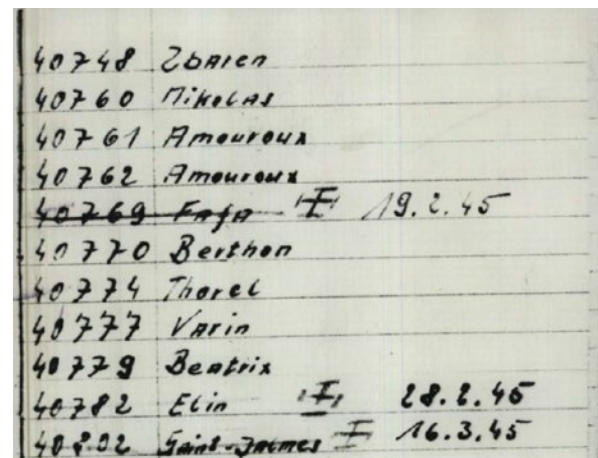 40748 Zbaren
40760 Mikolas
40761 Amouroux
40762 Amouroux
40769 Faja I 19.2.45
40770 Berthon
40774 Thorel
40777 Varin
40779 Beatrix
40782 Elin I 28.2.45
40802 Saint-James I 16.3.45